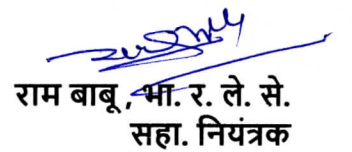 राम बाबू, भा. र. ले. से.
सहा. नियंत्रक